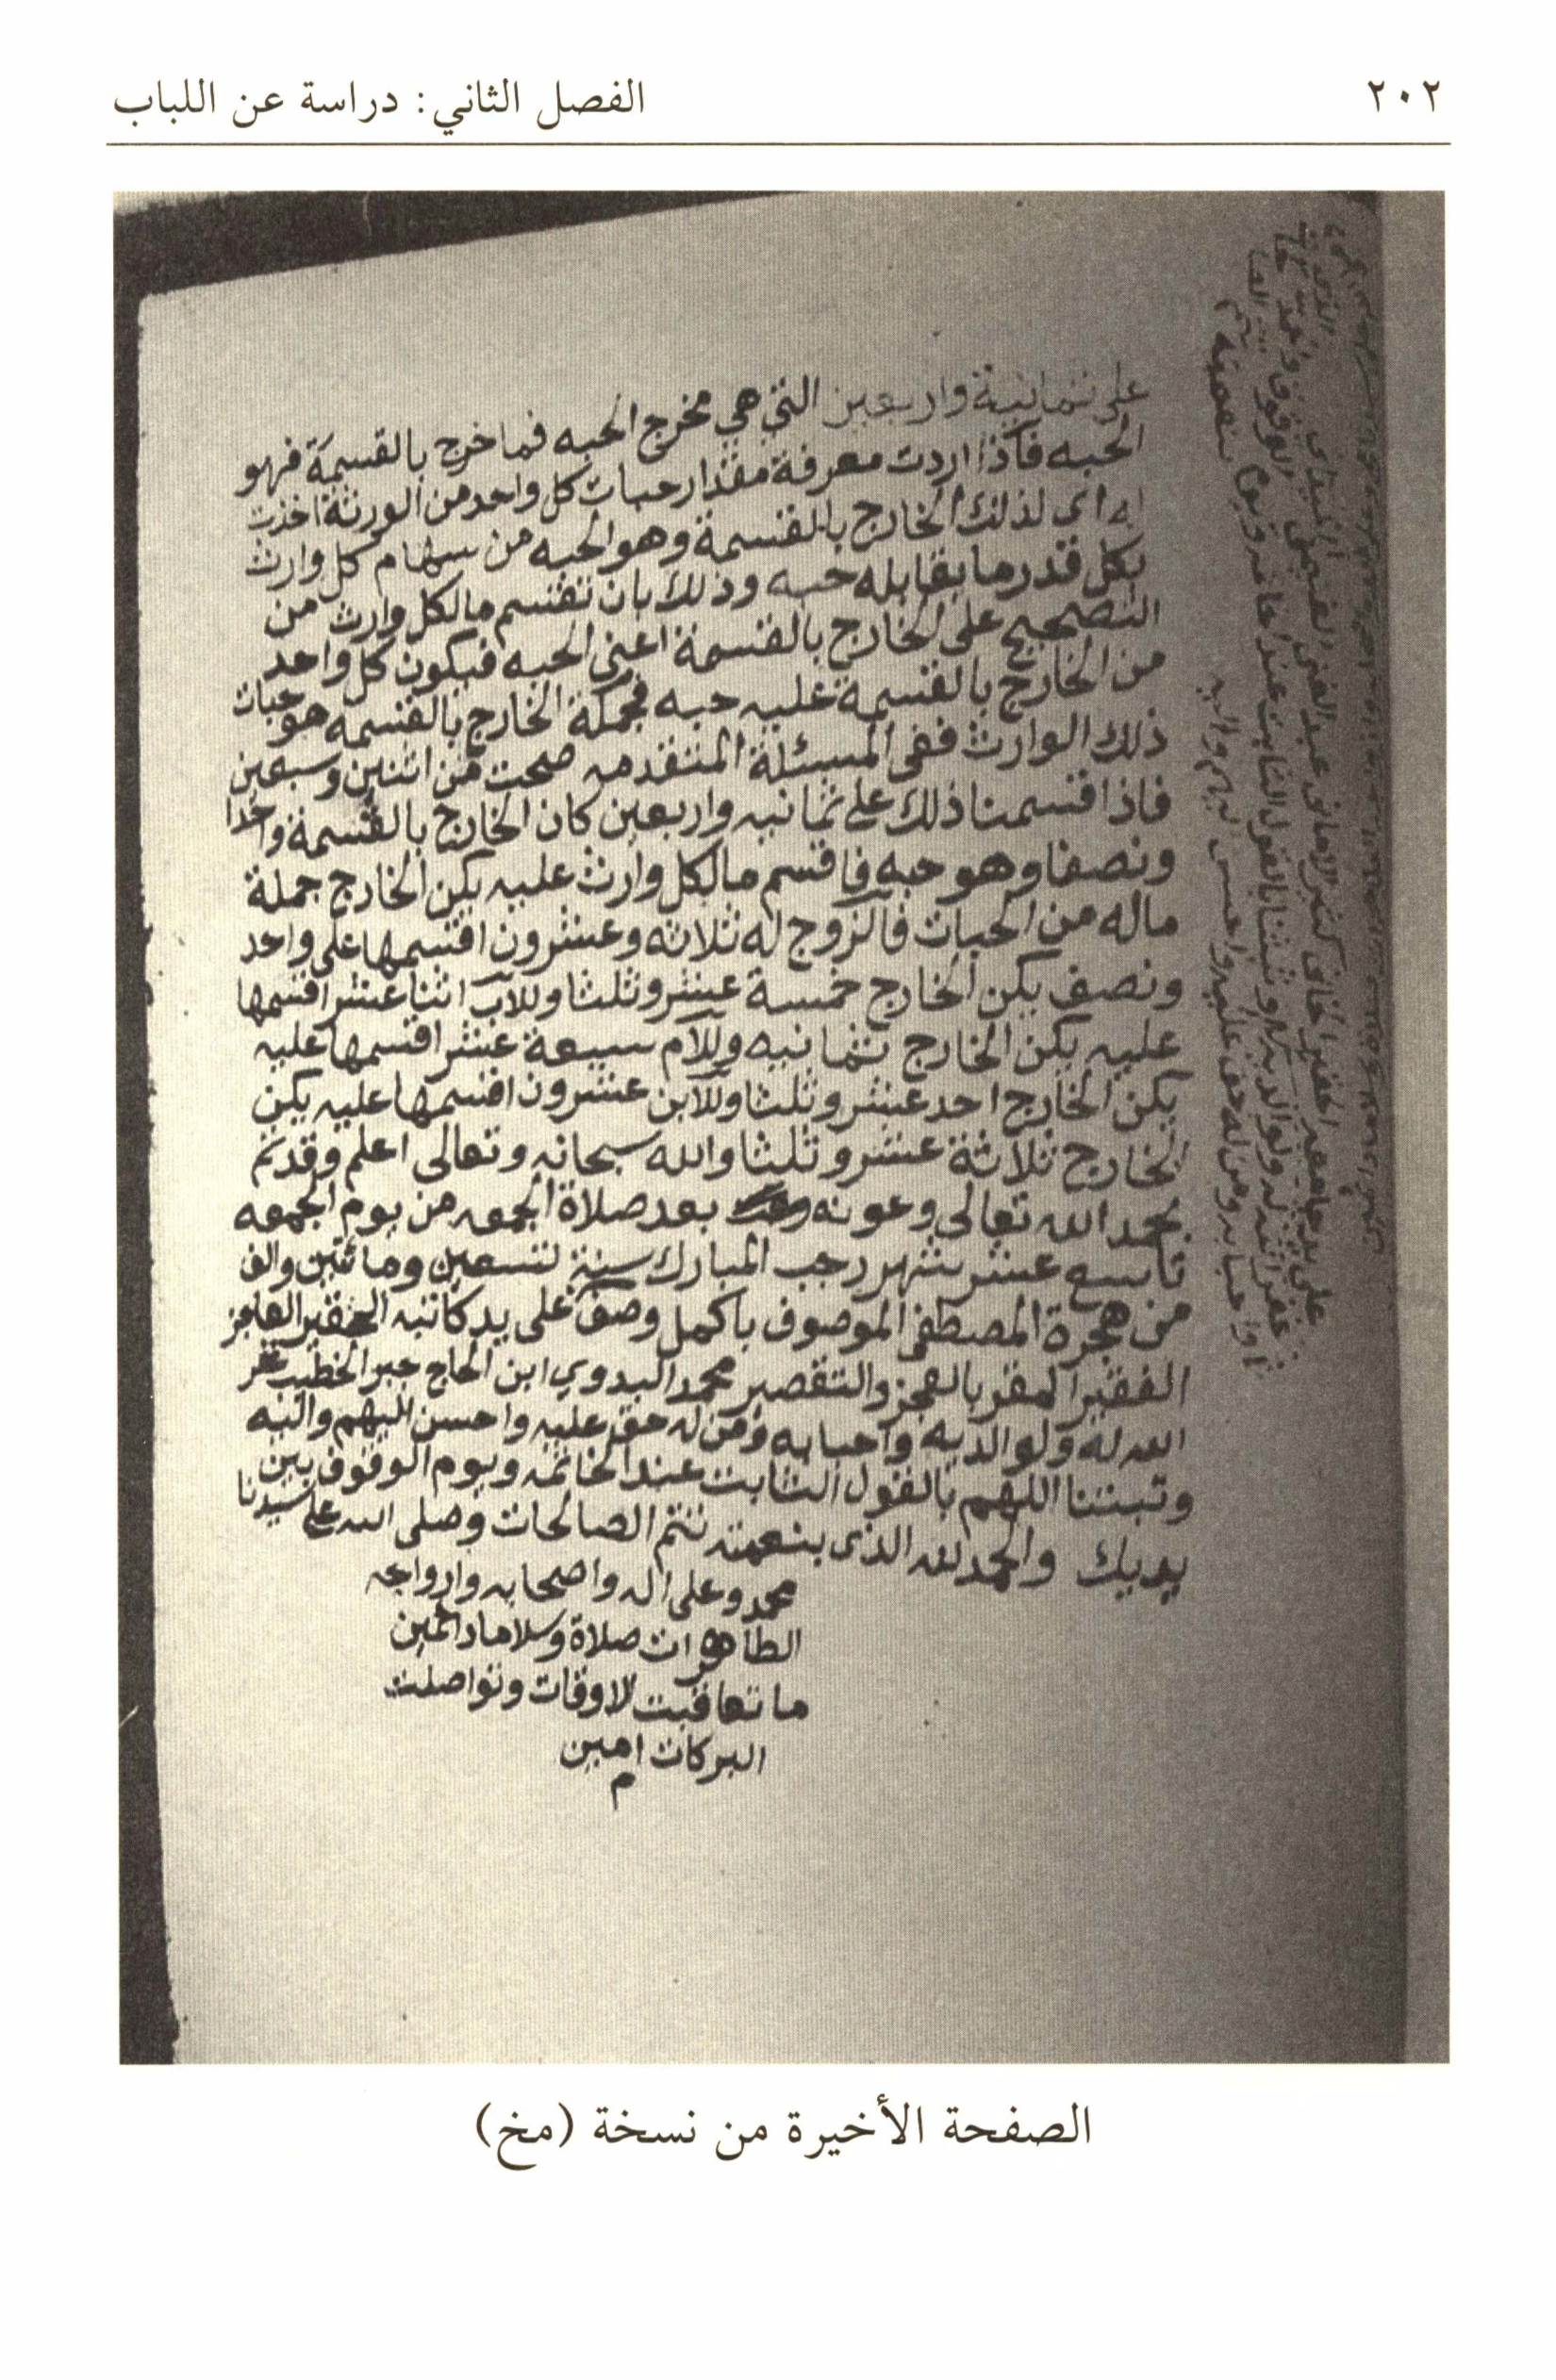 ٢٠٢
الفصل الثاني: دراسة عن اللباب
على ثمانية واربعين التي هي مخرج الحبه فما خرج بالقسمة فهو
الحبه فاذا اردت معرفة مقدار حبات كل واحد من الورثة اخذت
له اي لذلك الخارج بالقسمة وهو الحبه من سهام كل وارث
بكل قدر ما يقابله حبه وذلك بان تقسم ما لكل وارث من
التصحيح على الخارج بالقسمة اعني الحبه فيكون كل واحد
من الخارج بالقسمة عليه حبه فجملة الخارج بالقسمه هو حبات
ذلك الوارث ففي المسئلة المتقدمه صحت من اثنين وسبعين
فاذا قسمنا ذلك على ثمانيه واربعين كان الخارج بالقسمة واحدا
ونصفا وهو حبه فاقسم ما لكل وارث عليه يكن الخارج جملة
ماله من الحبات فالزوج له ثلاثه وعشرون اقسمها على واحد
ونصف يكن الخارج خمسة عشر وثلثا وللاب اثنا عشر اقسمها
عليه يكن الخارج ثمانيه وللام سبعة عشر اقسمها عليه
يكن الخارج احد عشر وثلثا وللابن عشرون اقسمها عليه يكن
الخارج ثلاثة عشر وثلثا والله سبحانه وتعالى اعلم وقد تم
بحمد الله تعالى وعونه بعد صلاة الجمعه من يوم الجمعه
تاسع عشر شهر رجب المبارك سنة تسعين ومائتين والف
من هجرة المصطفى الموصوف باكمل وصف على يد كاتبه الحقير العاجز
الفقير المقر بالعجز والتقصير محمد البدوي ابن الحاج جبر الخطيب غفر
الله له ولوالديه واحبابه ومن له حق عليه واحسن اليهم واليه
وثبتنا اللهم بالقول الثابت عند الخاتمه ويوم الوقوف بين
يديك والحمد لله الذي بنعمته تتم الصالحات وصلى الله على سيدنا
محمد وعلى اله واصحابه وازواجه
الطاهرات صلاة وسلاما دائمين
ما تعاقبت الاوقات وتواصلت
البركات امين
م
الصفحة الأخيرة من نسخة (مخ)